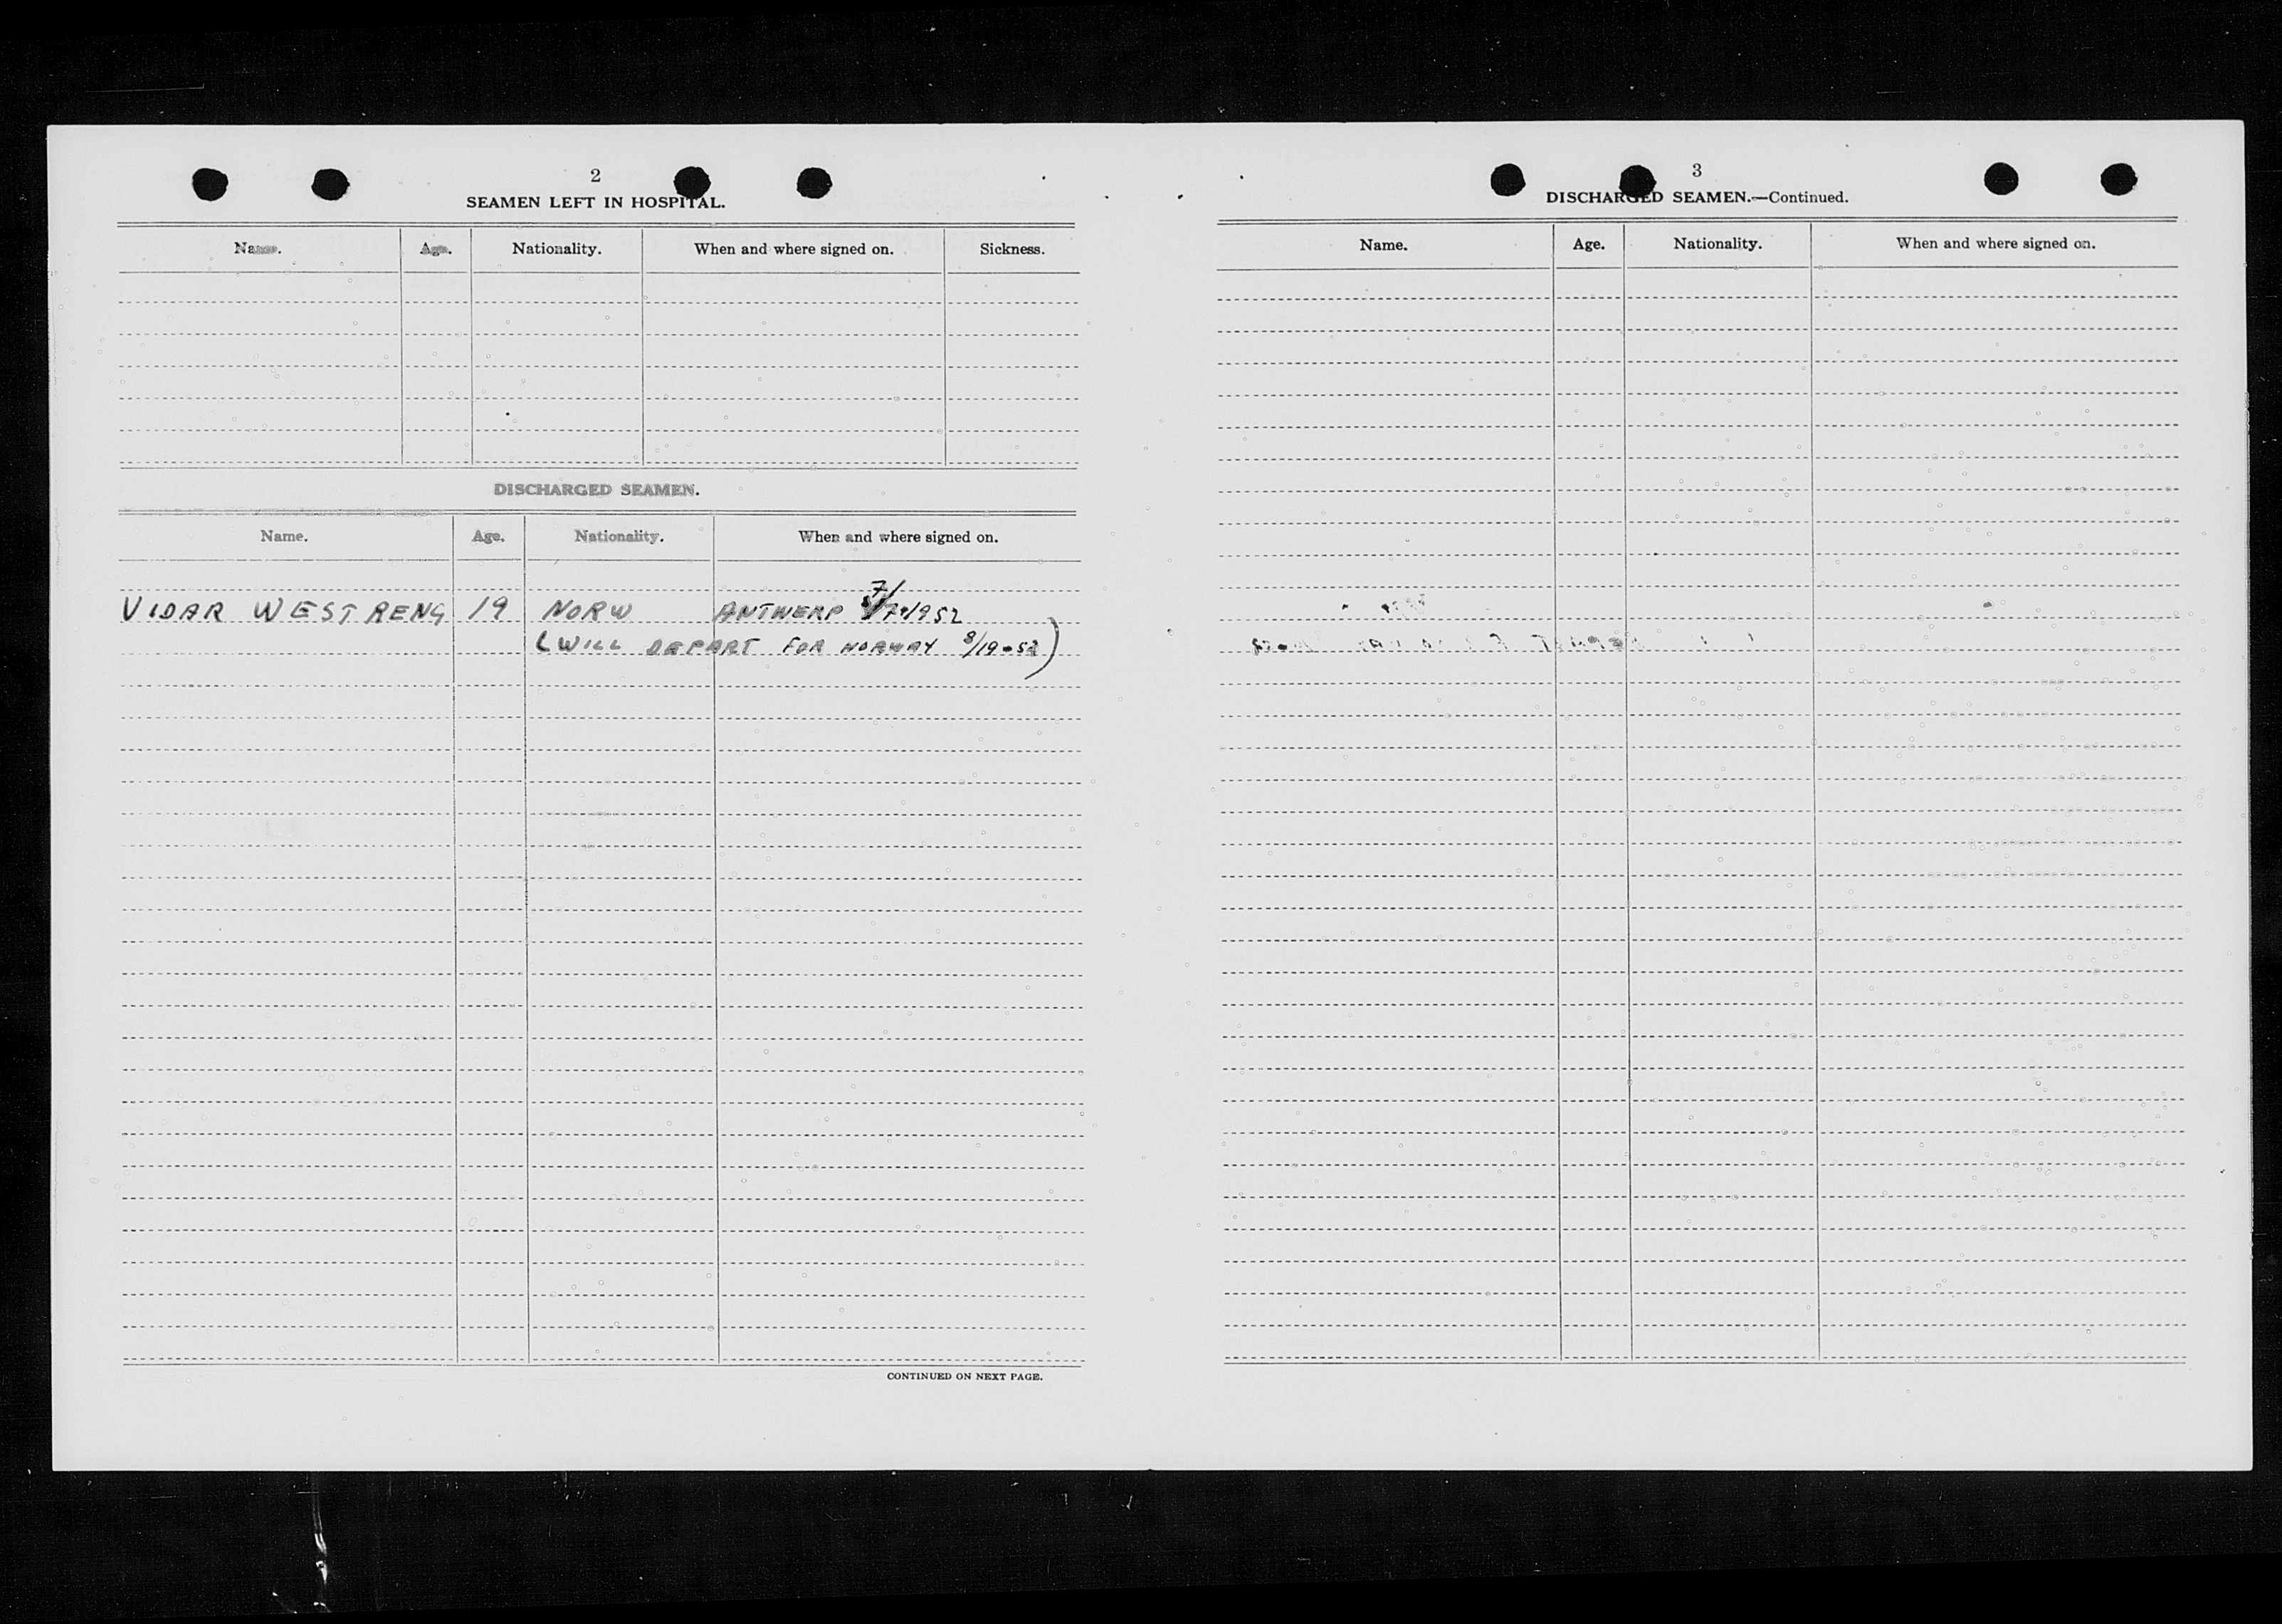 2
SEAMEN LEFT IN HOSPITAL.
Name. Age. Nationality. When and where signed on. Sickness.
DISCHARGED SEAMEN.
Name. Age. Nationality. When and where signed on.
VIDAR WESTRENG 19 NORW ANTWERP 7/7-1952
(WILL DEPART FOR NORWAY 8/19-52)
CONTINUED ON NEXT PAGE.
3
DISCHARGED SEAMEN.—Continued.
Name. Age. Nationality. When and where signed on.